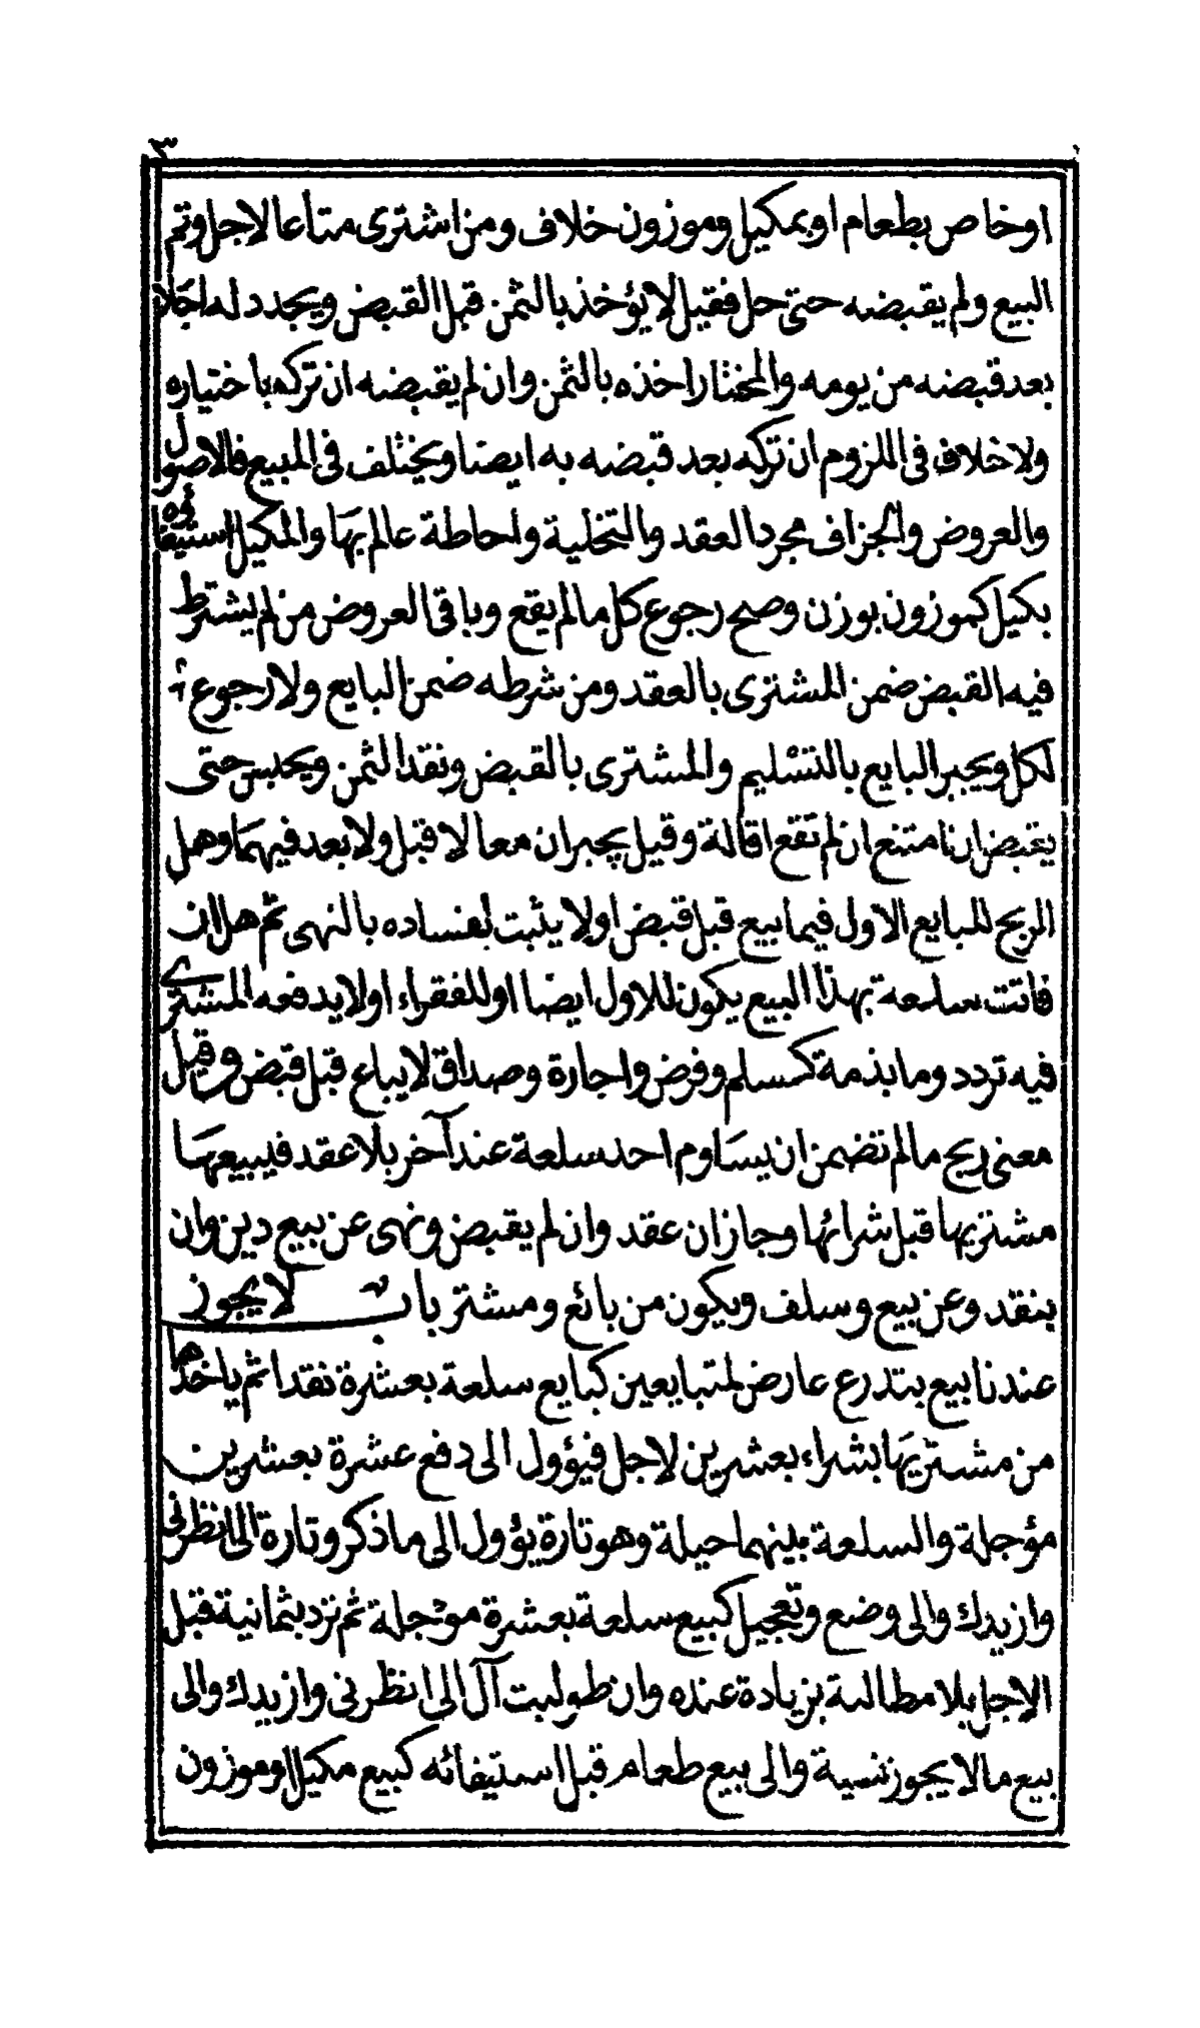 ٣
او خاص بطعام او بمكيل وموزون خلاف ومن اشترى متاعا لاجل وتم
البيع ولم يقبضه حتى حل فقيل لا يؤخذ بالثمن قبل القبض ويجدد له اجلا
بعد قبضه من يومه والمختار اخذه بالثمن وان لم يقبضه ان تركه باختياره
ولا خلاف فى اللزوم ان تركه بعد قبضه به ايضا ويختلف فى المبيع فالاصول
والعروض والجزاف مجرد العقد والتخلية واحاطة عالم بها والمكيل استيفاؤه
بكيل كموزون بوزن وصح رجوع كل مالم يقع وباقى العروض من لم يشترط
فيه القبض ضمن المشترى بالعقد ومن شرطه ضمن البايع ولا رجوع
لكل ويجبر البايع بالتسليم والمشترى بالقبض ونقد الثمن ويحبس حتى
يقبض ان امتنع ان لم تقع اقالة وقيل يجبران معا لا قبل ولا بعد فيهما وهل
الربح للبايع الاول فيما بيع قبل قبض اولا يثبت لفساده بالنهى ثم هل ان
فاتت سلعة بهذا البيع يكون للاول ايضا او للفقراء او لا يدفعه المشترى
فيه تردد وما بذمة كسلم وفرض واجارة وصداق لا يباع قبل قبض وقيل
معنى ربح مالم تضمن ان يساوم احد سلعة عند آخر بلا عقد فيبيعها
مشتريها قبل شرائها وجاز ان عقد وان لم يقبض ونهى عن بيع دين وان
بنقد وعن بيع وسلف ويكون من بائع ومشتر باب لا يجوز
عندنا بيع بتدرع عارض لمتبايعين كبايع سلعة بعشرة نقدا ثم ياخذها
من مشتريها بشراء بعشرين لاجل فيؤول الى دفع عشرة بعشرين
مؤجلة والسلعة بينهما حيلة وهو تارة يؤول الى ما ذكر وتارة الى انظرنى
وازيدك والى وضع وتعجيل كبيع سلعة بعشرة مؤجلة ثم ترد بثمانية قبل
الاجل بلا مطالبة بزيادة عنده وان طولبت آل الى انظرنى وازيدك والى
بيع مالا يجوز نسية والى بيع طعام قبل استيفائه كبيع مكيل او موزون